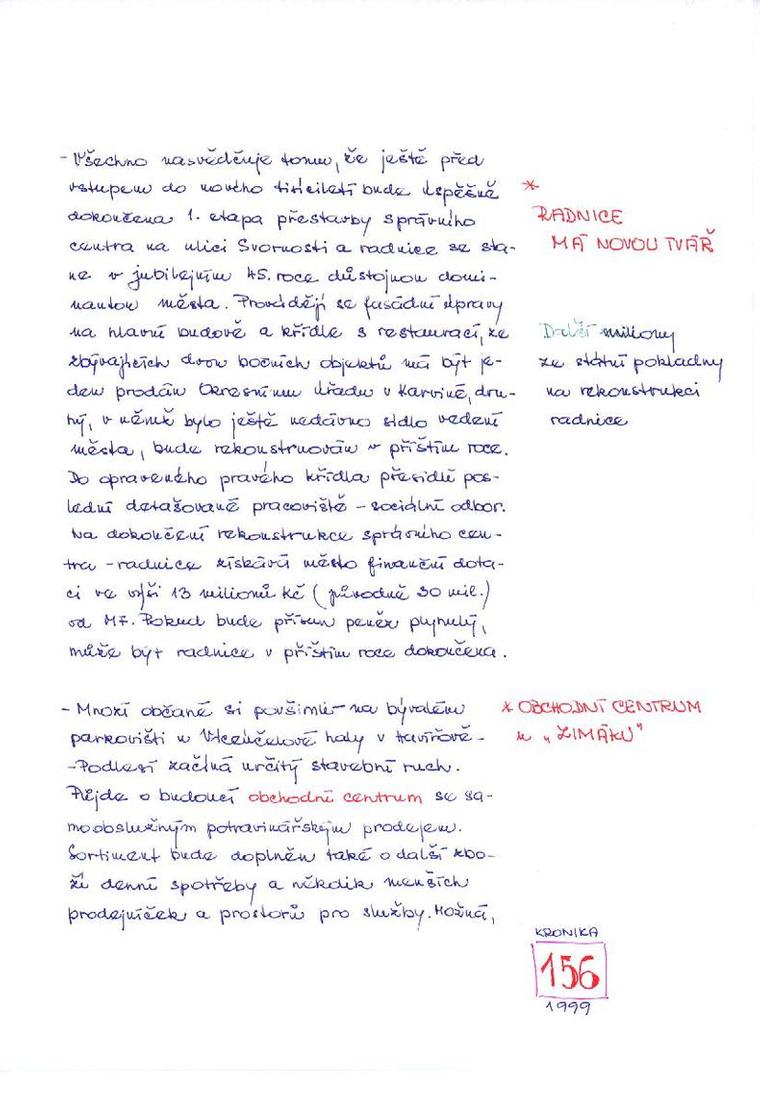 - Všechno nasvědčuje tomu, že ještě před
vstupem do nového tisíciletí bude úspěšně
dokončena 1. etapa přestavby správního
centra na ulici Svornosti a radnice se sta-
ne v jubilejním 45. roce důstojnou domi-
nantou města. Provádějí se fasádní úpravy
na hlavní budově a křídle s restaurací, ze
zbývajících dvou bočních objektů má být je-
den prodán Okresnímu úřadu v Karviné, dru-
hý, v němž bylo ještě nedávno sídlo vedení
města, bude rekonstruován v příštím roce.
Do opraveného pravého křídla přesídlí pos-
lední detašované pracoviště - sociální odbor.
Na dokončení rekonstrukce správního cen-
tra - radnice získává město finanční dota-
ci ve výši 13 milionů Kč (původně 30 mil.)
od MF. Pokud bude přísun peněz plynulý,
může být radnice v příštím roce dokončena.
*
RADNICE
MÁ NOVOU TVÁŘ
Další miliony
ze státní pokladny
na rekonstrukci
radnice
- Mnozí občané si povšimli - na bývalém
parkovišti u Víceúčelové haly v Havířově-
-Podlesí začíná určitý stavební ruch.
Půjde o budoucí obchodní centrum se sa-
moobslužným potravinářským prodejem.
Sortiment bude doplněn také o další zbo-
ží denní spotřeby a někdik menších
prodejniček a prostorů pro služby. Možná,
* OBCHODNÍ CENTRUM
u „ZIMÁKU"
KRONIKA
156
1999